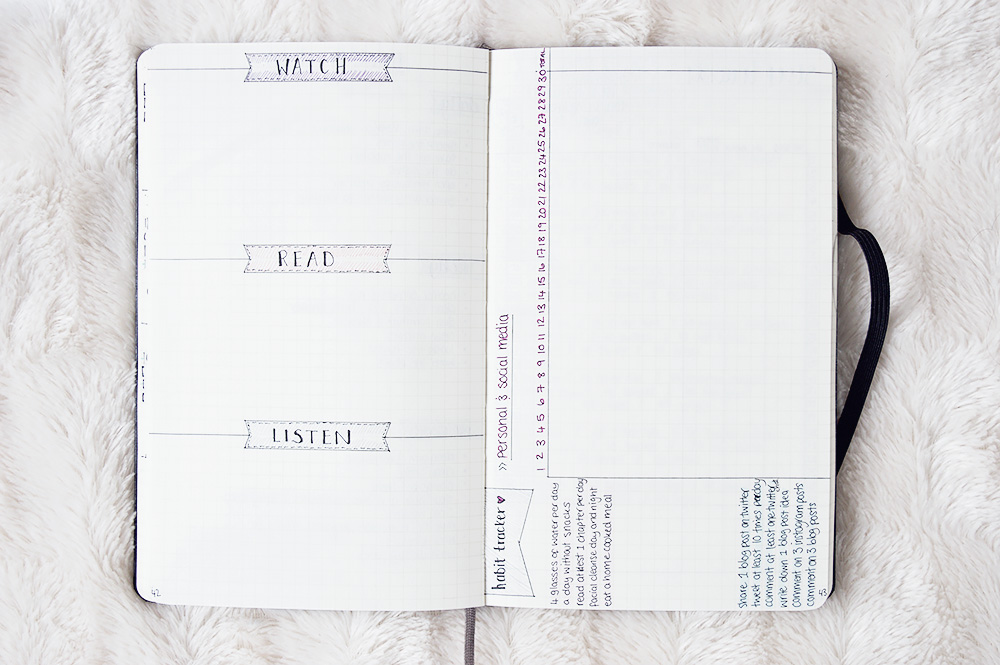 WATCH
READ
LISTEN
42
habit tracker
» personal & social media
1 2 3 4 5 6 7 8 9 10 11 12 13 14 15 16 17 18 19 20 21 22 23 24 25 26 27 28 29 30 TOTAL
4 glasses of water per day
a day without snacks
read at least 1 chapter per day
facial cleanse day and night
eat a home cooked meal
share 1 blog post on twitter
tweet at least 10 times per day
comment at least one twitter
write down 1 blog post idea
comment on 3 instagram posts
comment on 3 blog posts
43